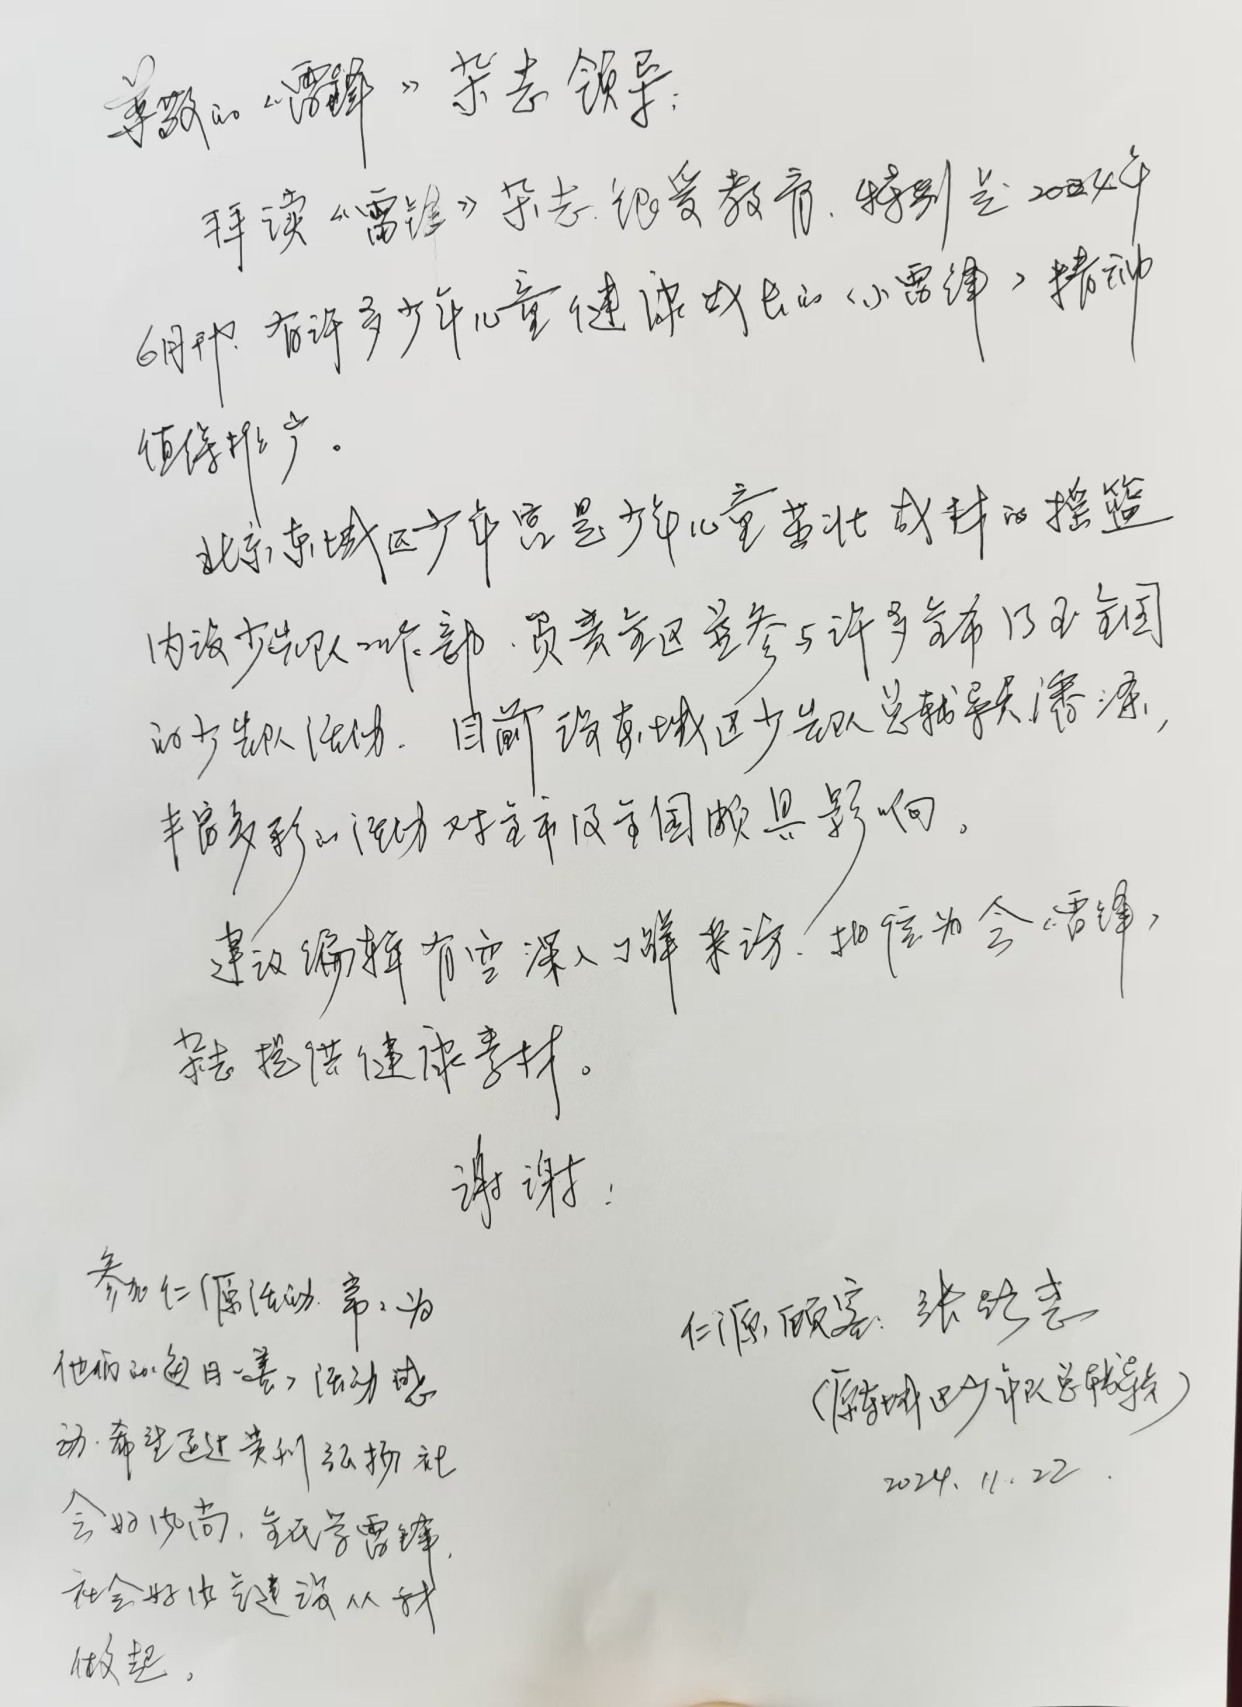 尊敬的《雷锋》杂志领导：
拜读《雷锋》杂志.很受教育.特别是2024年
6月刊.有许多少年儿童健康成长的《小雷锋》精神
值得推广。
北京东城区少年宫是少年儿童茁壮成材的摇篮
内设少先队工作部.负责全区并参与许多全市乃至全国
的少先队活动.目前设东城区少先队总辅导员潘涤,
丰富多彩的活动对全市及全国颇具影响。
建议编辑有空深入了解采访.相信为会《雷锋》
杂志提供健康素材。
谢谢!
参加仁源活动.常々为
他们的每日一善》活动感
动.希望通过贵刊弘扬社
会好风尚.全民学雷锋.
社会好风气建设从我
做起.
仁源顾客:张 志
(原东城区少年队总辅导员)
2024.11.22.